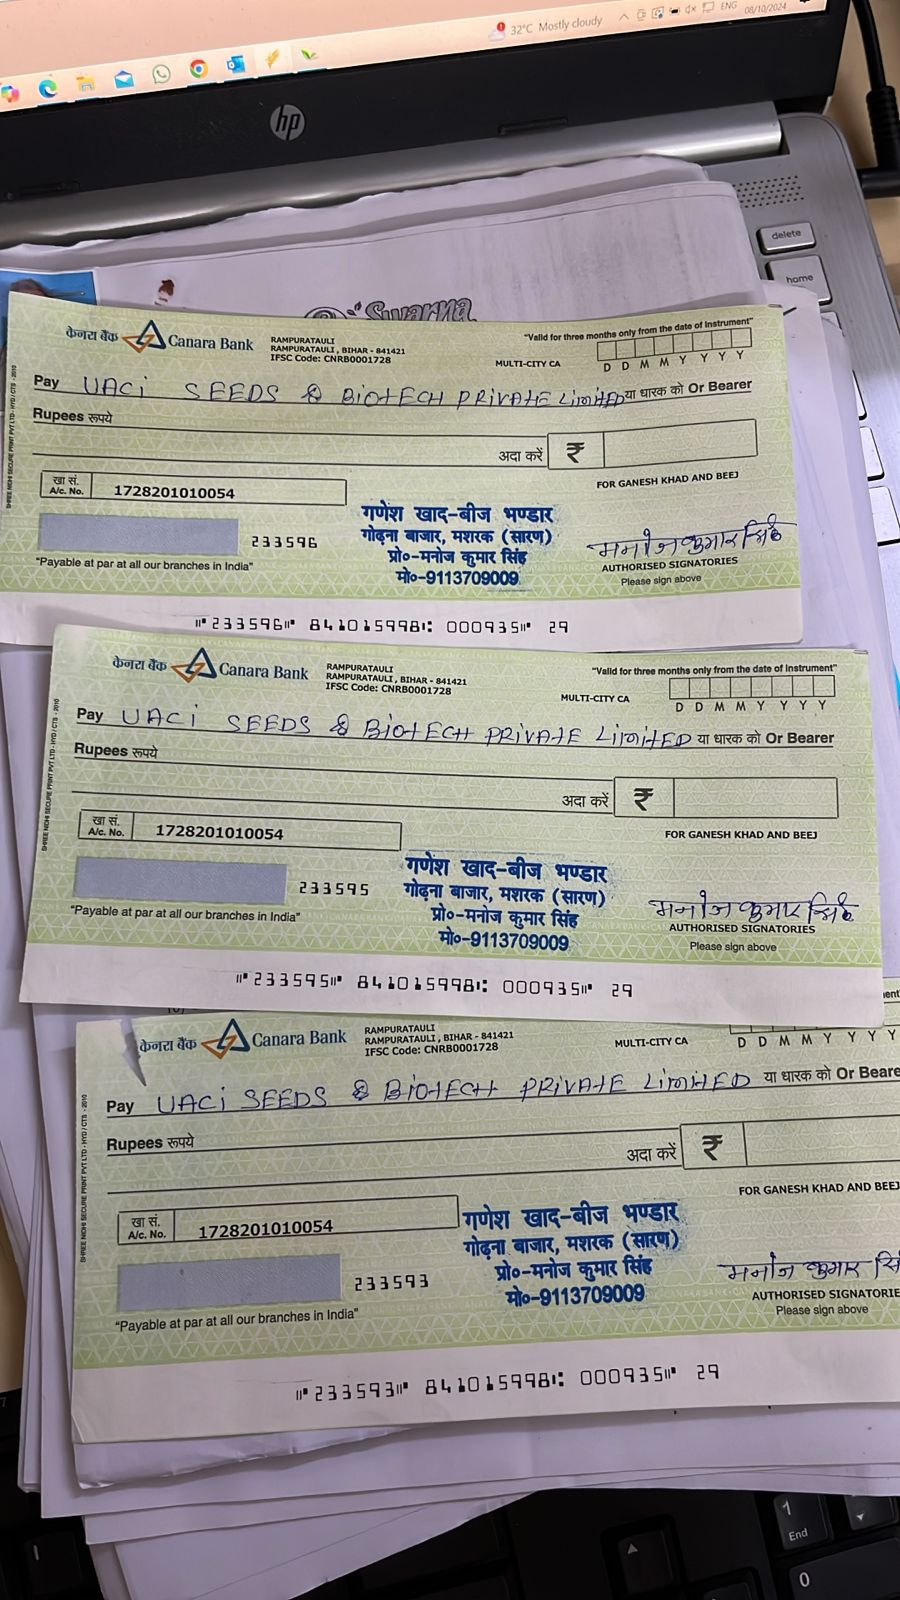 32°C Mostly cloudy
ENG
08/10/2024
hp
delete
home
Swarna
केनरा बैंक Canara Bank
RAMPURATAULI
RAMPURATAULI, BIHAR - 841421
IFSC Code: CNRB0001728
MULTI-CITY CA
"Valid for three months only from the date of Instrument"
D D M M Y Y Y Y
Pay UACi SEEDS & BiOtECH PRiVAtE LimitED या धारक को Or Bearer
Rupees रूपये
अदा करें ₹
खा सं.
A/c. No. 1728201010054
FOR GANESH KHAD AND BEEJ
233596
"Payable at par at all our branches in India"
गणेश खाद-बीज भण्डार
गोढ़ना बाजार, मशरक (सारण)
प्रो०-मनोज कुमार सिंह
मो०-9113709009
मनोज कुमार सिंह
AUTHORISED SIGNATORIES
Please sign above
SHREE NIDHI SECURE PRINT PVT LTD - HYD / CTS - 2010
⑈233596⑈ 841015998⑆ 000935⑈ 29
केनरा बैंक Canara Bank
RAMPURATAULI
RAMPURATAULI, BIHAR - 841421
IFSC Code: CNRB0001728
MULTI-CITY CA
"Valid for three months only from the date of Instrument"
D D M M Y Y Y Y
Pay UACi SEEDS & BiOtECH PRiVAtE LimitED या धारक को Or Bearer
Rupees रूपये
अदा करें ₹
खा सं.
A/c. No. 1728201010054
FOR GANESH KHAD AND BEEJ
233595
"Payable at par at all our branches in India"
गणेश खाद-बीज भण्डार
गोढ़ना बाजार, मशरक (सारण)
प्रो०-मनोज कुमार सिंह
मो०-9113709009
मनोज कुमार सिंह
AUTHORISED SIGNATORIES
Please sign above
SHREE NIDHI SECURE PRINT PVT LTD - HYD / CTS - 2010
⑈233595⑈ 841015998⑆ 000935⑈ 29
केनरा बैंक Canara Bank
RAMPURATAULI
RAMPURATAULI, BIHAR - 841421
IFSC Code: CNRB0001728
MULTI-CITY CA
D D M M Y Y Y Y
Pay UACi SEEDS & BiOtECH PRiVAtE LimitED या धारक को Or Beare
Rupees रूपये
अदा करें ₹
खा सं.
A/c. No. 1728201010054
FOR GANESH KHAD AND BEEJ
233593
"Payable at par at all our branches in India"
गणेश खाद-बीज भण्डार
गोढ़ना बाजार, मशरक (सारण)
प्रो०-मनोज कुमार सिंह
मो०-9113709009
मनोज कुमार सि
AUTHORISED SIGNATORIE
Please sign above
SHREE NIDHI SECURE PRINT PVT LTD - HYD / CTS - 2010
⑈233593⑈ 841015998⑆ 000935⑈ 29
1
End
0